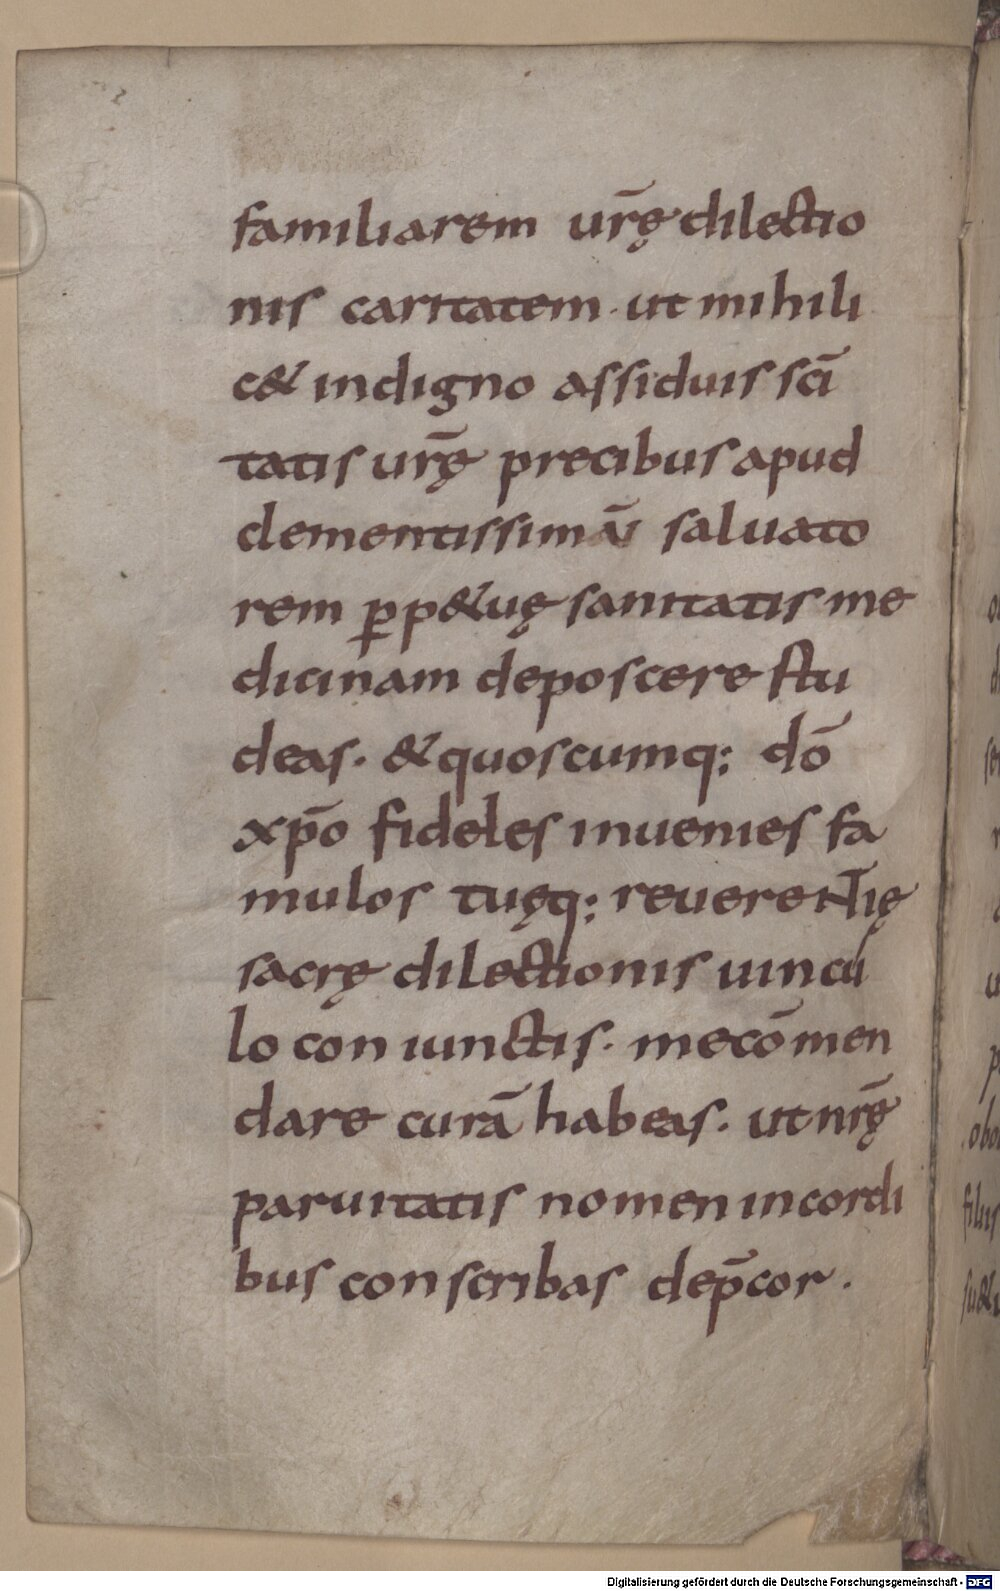 familiarem ur̄ę dilectio
nis caritatem · ut mihi li
c& indigno assiduis sc̄i
tatis ur̄ę precibus apud
clementissimū saluato
rem ꝑp&uę sanitatis me
dicinam deposcere stu
deas · & quoscumq: dō
xp̄o fideles inuenies fa
mulos tuęq: reuerentię
sacrę dilectionis uincu
lo coniunctis · me cōmen
dare curā habeas · ut nr̄ę
paruitatis nomen in cordi
bus conscribas dep̄cor ·
Digitalisierung gefördert durch die Deutsche Forschungsgemeinschaft - DFG